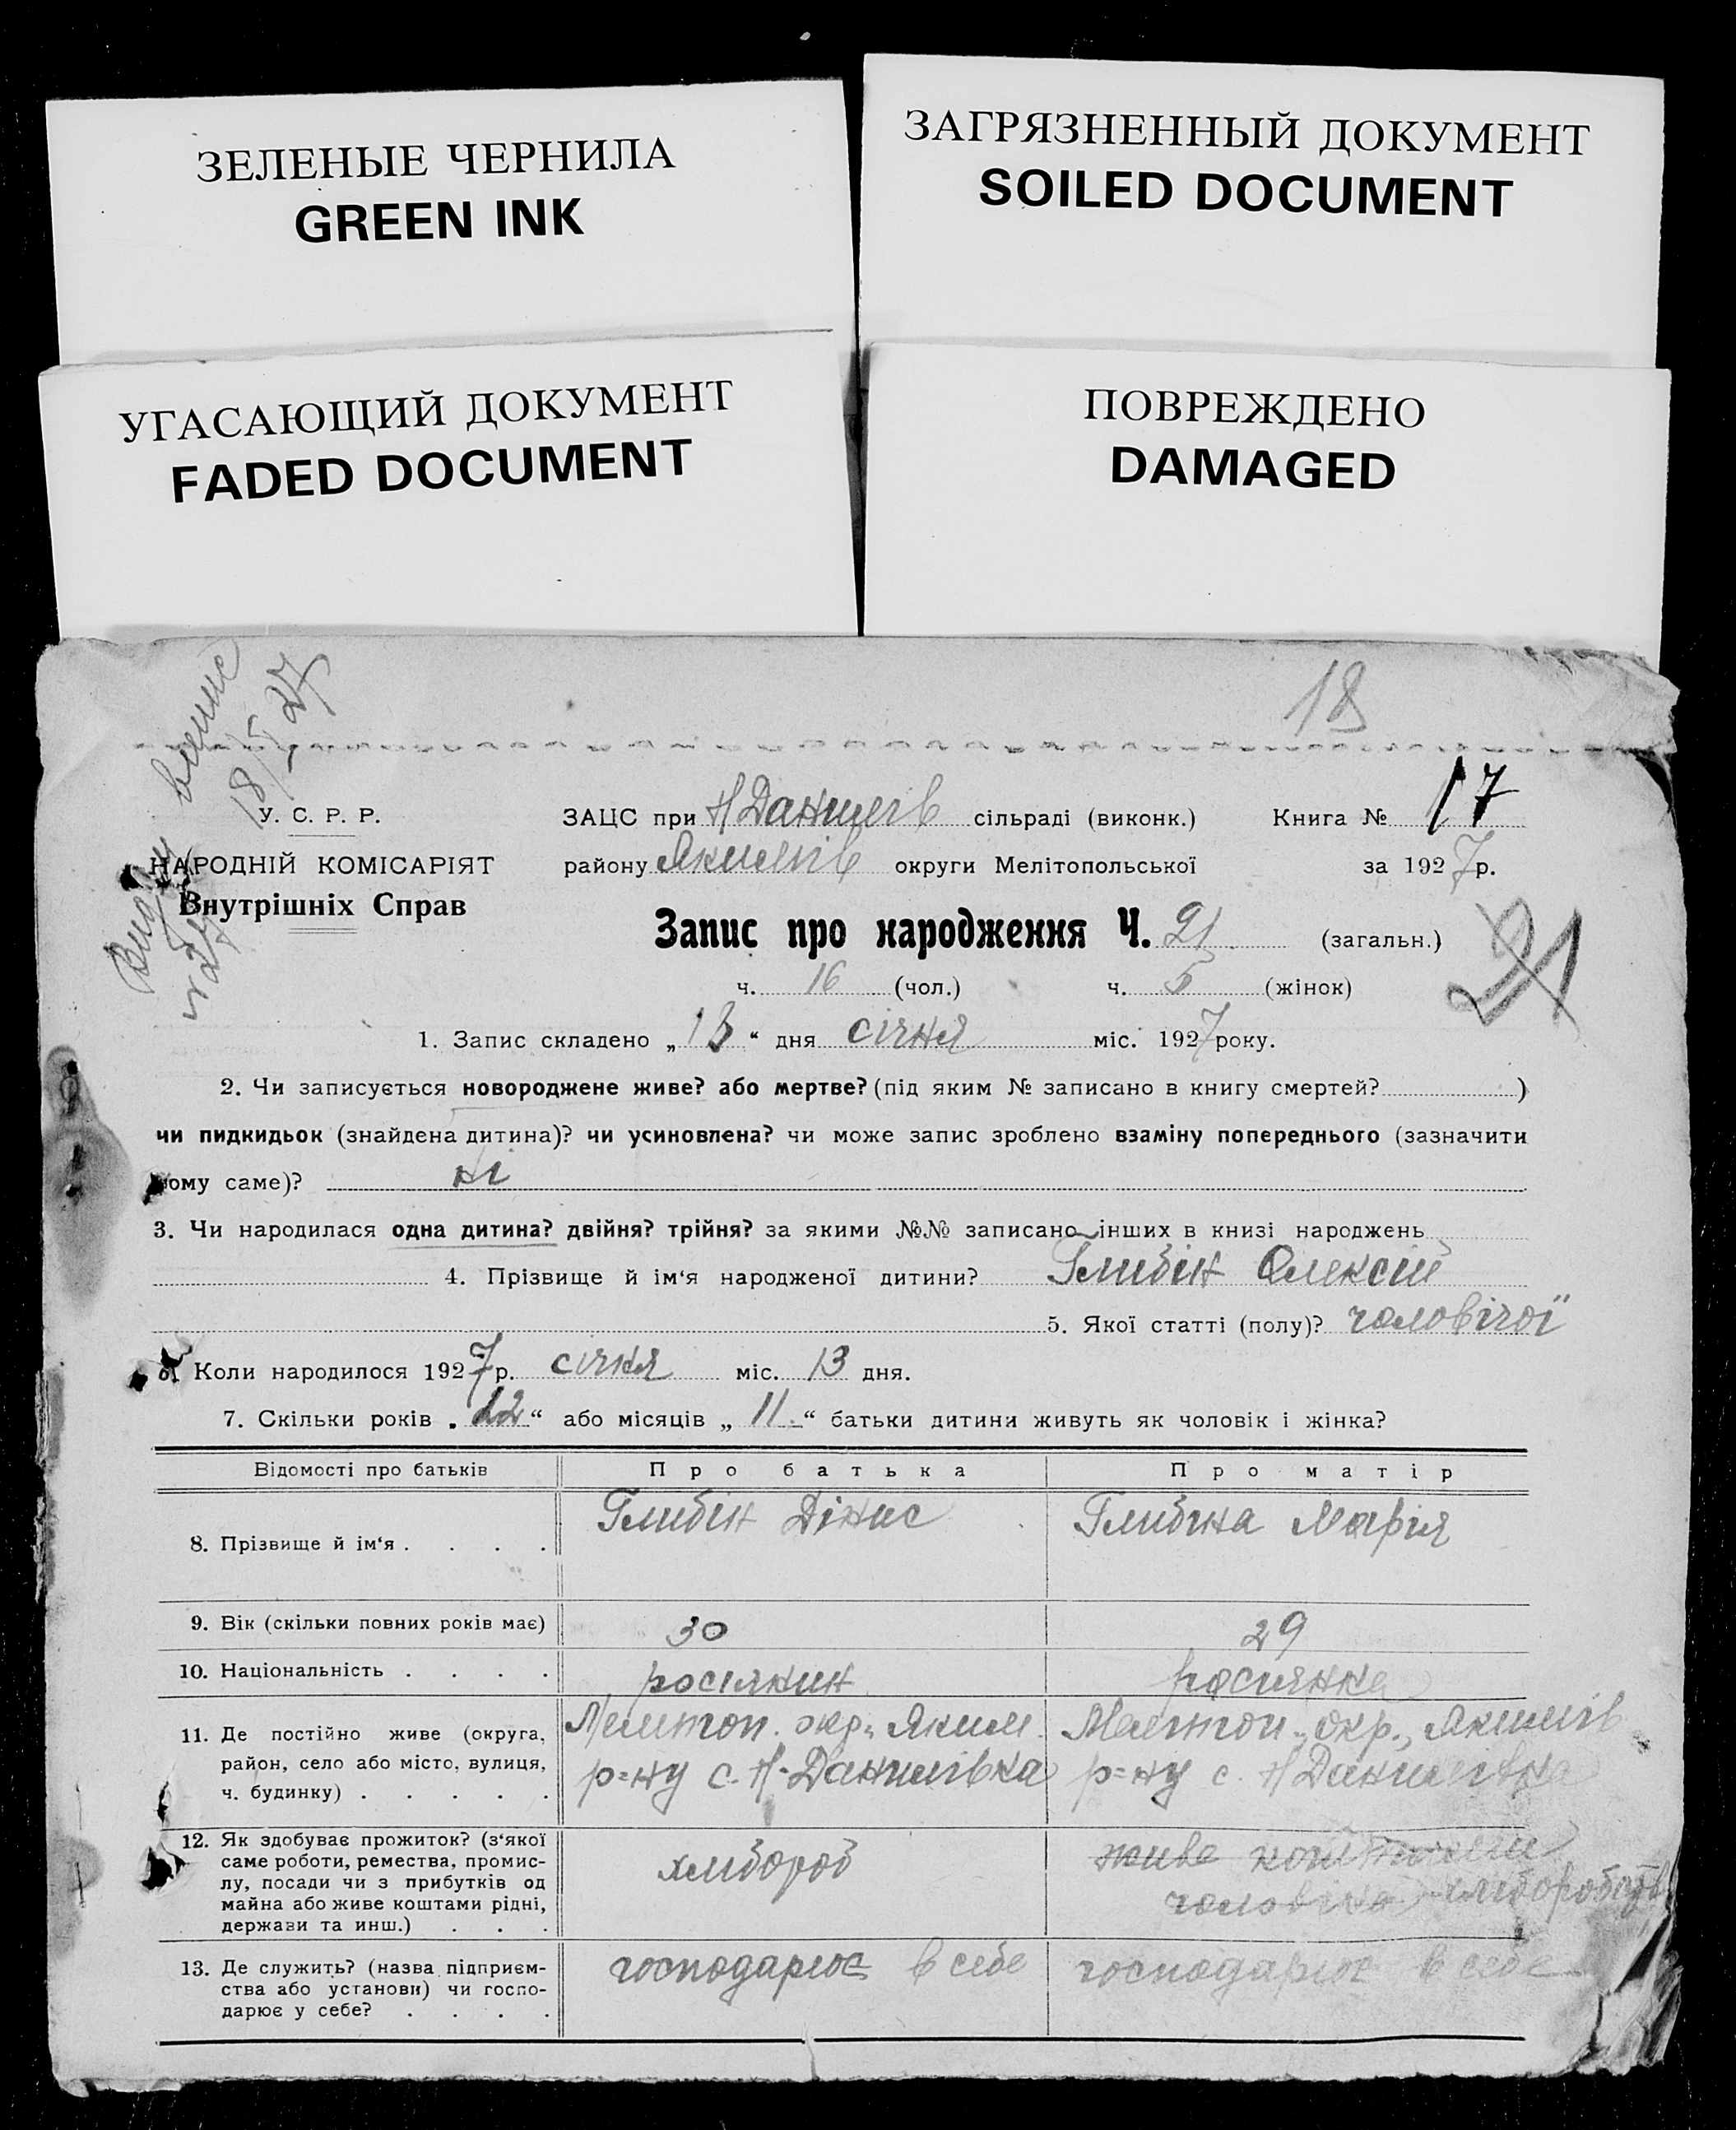 ЗЕЛЕНЫЕ ЧЕРНИЛА
GREEN INK
ЗАГРЯЗНЕННЫЙ ДОКУМЕНТ
SOILED DOCUMENT
УГАСАЮЩИЙ ДОКУМЕНТ
FADED DOCUMENT
ПОВРЕЖДЕНО
DAMAGED
18
18/5 27
У. С. Р. Р.
НАРОДНІЙ КОМІСАРІЯТ
Внутрішніх Справ
ЗАЦС при Н Данилів сільраді (виконк.) Книга № 17
району Якимів округи Мелітопольської за 1927 р.
Запис про народження Ч. 21 (загальн.)
21
ч. 16 (чол.) ч. 5 (жінок)
1. Запис складено „13“ дня січня міс. 1927 року.
2. Чи записується новороджене живе? або мертве? (під яким № записано в книгу смертей? )
чи пидкидьок (знайдена дитина)? чи усиновлена? чи може запис зроблено взаміну попереднього (зазначити
чому саме)? ні
3. Чи народилася одна дитина? двійня? трійня? за якими №№ записано інших в книзі народжень
4. Прізвище й ім‘я народженої дитини? Глибін Олексій
5. Якої статті (полу)? чоловічої
6. Коли народилося 1927 р. січня міс. 13 дня.
7. Скільки років „12“ або місяців „11“ батьки дитини живуть як чоловік і жінка?
Відомості про батьків Про батька Про матір
8. Прізвище й ім‘я . . . . Глибін Дінис Глибина Марія
9. Вік (скільки повних років має) 30 29
10. Національність . . . . росіянин росиянка
11. Де постійно живе (округа,
район, село або місто, вулиця,
ч. будинку) . . . . .
Мелітоп. окр., Яким.
р=ну с. Н-Данилівка
Мелітоп. окр., Якимів
р=ну с. Н Данилівка
12. Як здобуває прожиток? (з‘якої
саме роботи, ремества, промис-
лу, посади чи з прибутків од
майна або живе коштами рідні,
держави та инш.) . . .
хлибороб
живе коштами
чоловіка
13. Де служить? (назва підприєм-
ства або установи) чи госпо-
дарює у себе? . . . .
господарює в себе
господарює в себе